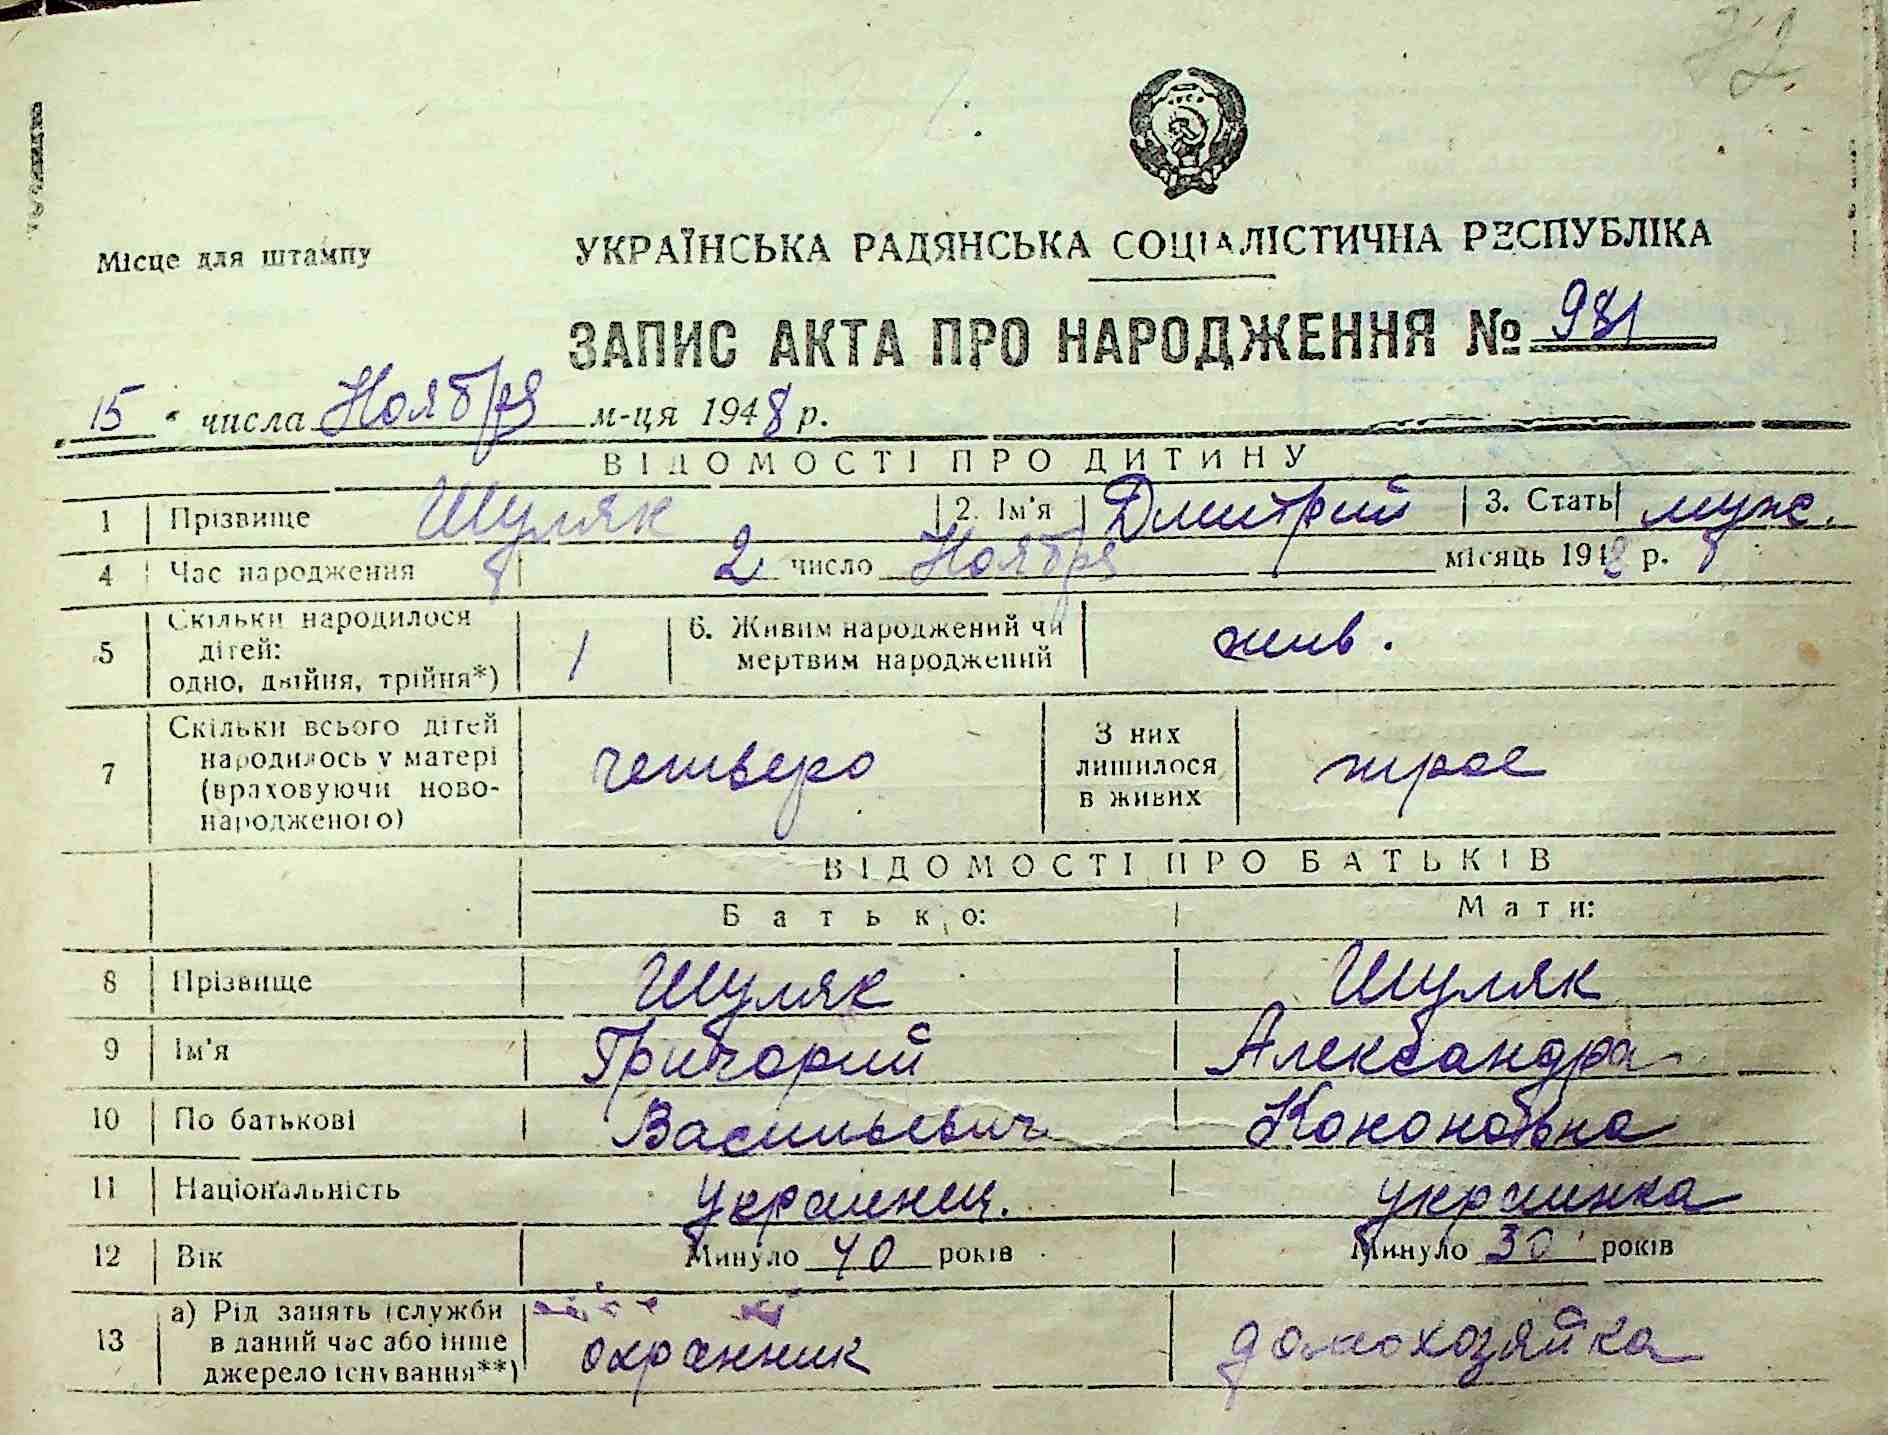 Місце для штампу
УКРАЇНСЬКА РАДЯНСЬКА СОЦІАЛІСТИЧНА РЕСПУБЛІКА
ЗАПИС АКТА ПРО НАРОДЖЕННЯ № 981
„15“ числа Ноября м-ця 1948 р.
ВІДОМОСТІ ПРО ДИТИНУ
1 Прізвище Шуляк 2. Ім'я Дмитрий 3. Стать муж.
4 Час народження 2 число Ноября місяць 1948 р. 8
5 Скільки народилося дітей: одно, двійня, трійня*) 1 6. Живим народжений чи мертвим народжений жив.
7 Скільки всього дітей народилось у матері (враховуючи ново-народженого) четверо З них лишилося в живих трое
ВІДОМОСТІ ПРО БАТЬКІВ
Батько: Мати:
8 Прізвище Шуляк Шуляк
9 Ім'я Григорий Александра
10 По батькові Васильевич Кононовна
11 Національність украинец. украинка
12 Вік Минуло 40 років Минуло 30 років
13 а) Рід занять (служби в даний час або інше джерело існування**) охранник домохозяйка